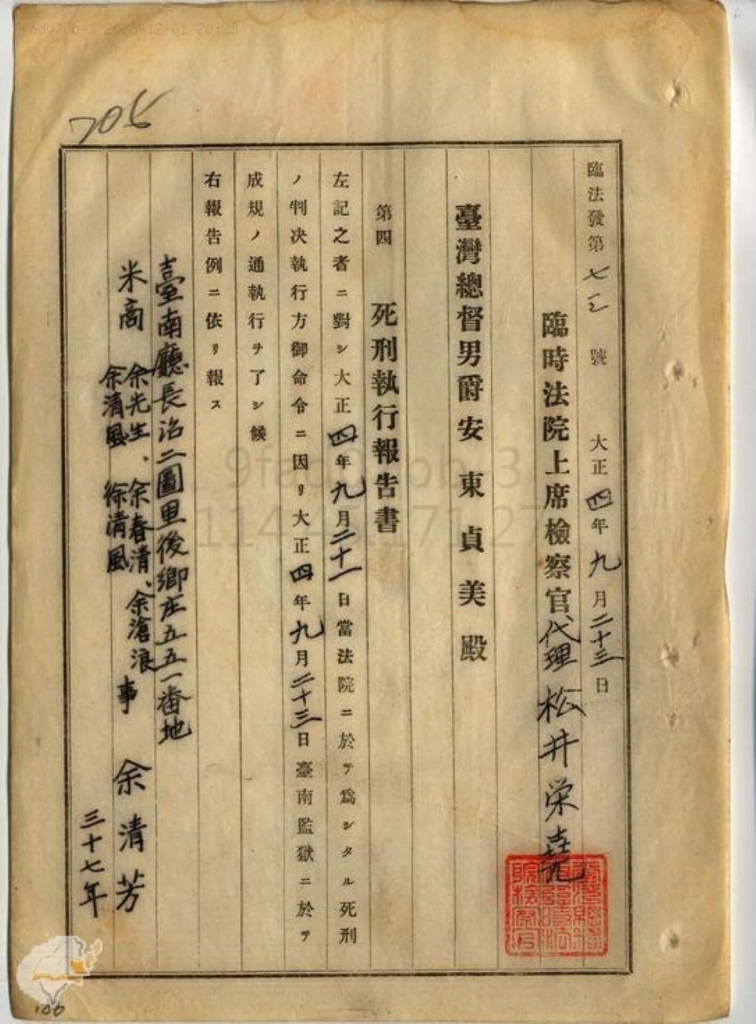 705
臨法發第七三號 大正四年九月二十三日
臨時法院上席檢察官代理松井栄堯
臺灣總督男爵安東貞美殿
第四 死刑執行報告書
左記之者ニ對シ大正四年九月二十一日當法院ニ於テ爲シタル死刑
ノ判決執行方御命令ニ因リ大正四年九月二十三日臺南監獄ニ於テ
成規ノ通執行ヲ了シ候
右報告例ニ依リ報ス
臺南廳長治二圖里後鄉庄五五一番地
米高 余先生、余春清、余滄浪
余清風 徐清風
事 余清芳
三十七年
106